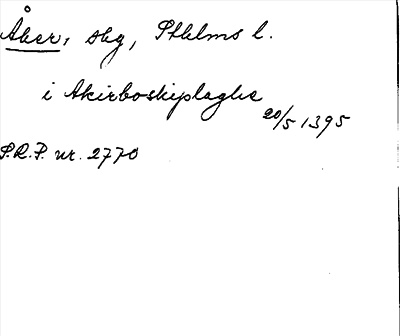 Åker, skg, Sthlms l.
i Akirboskiplaghe
20/5 1395
S.R.P. nr. 2770